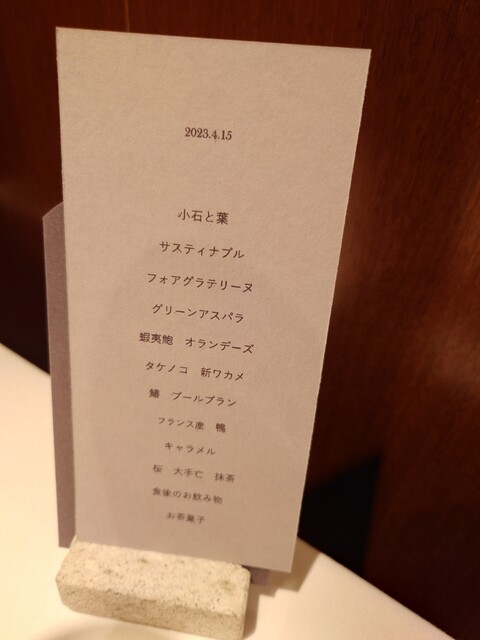 2023.4.15
小石と葉
サスティナブル
フォアグラテリーヌ
グリーンアスパラ
蝦夷鮑　オランデーズ
タケノコ　新ワカメ
鰆　ブールブラン
フランス産　鴨
キャラメル
桜　大手亡　抹茶
食後のお飲み物
お茶菓子